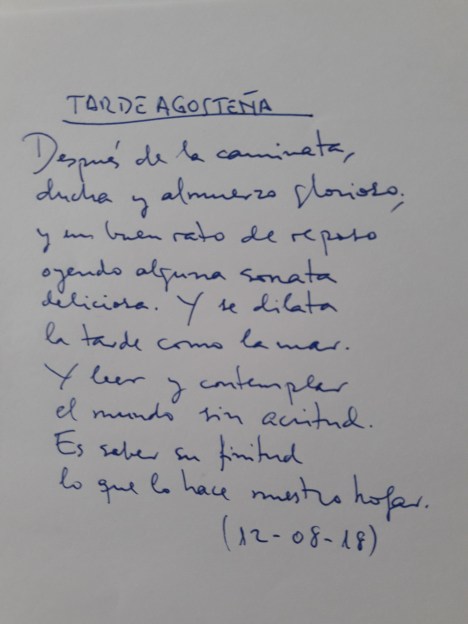 TARDE AGOSTEÑA
Después de la caminata,
ducha y almuerzo glorioso;
y un buen rato de reposo
oyendo alguna sonata
deliciosa. Y se dilata
la tarde como la mar.
Y leer y contemplar
el mundo sin acritud.
Es saber su finitud
lo que lo hace nuestro hogar.
(12-08-18)